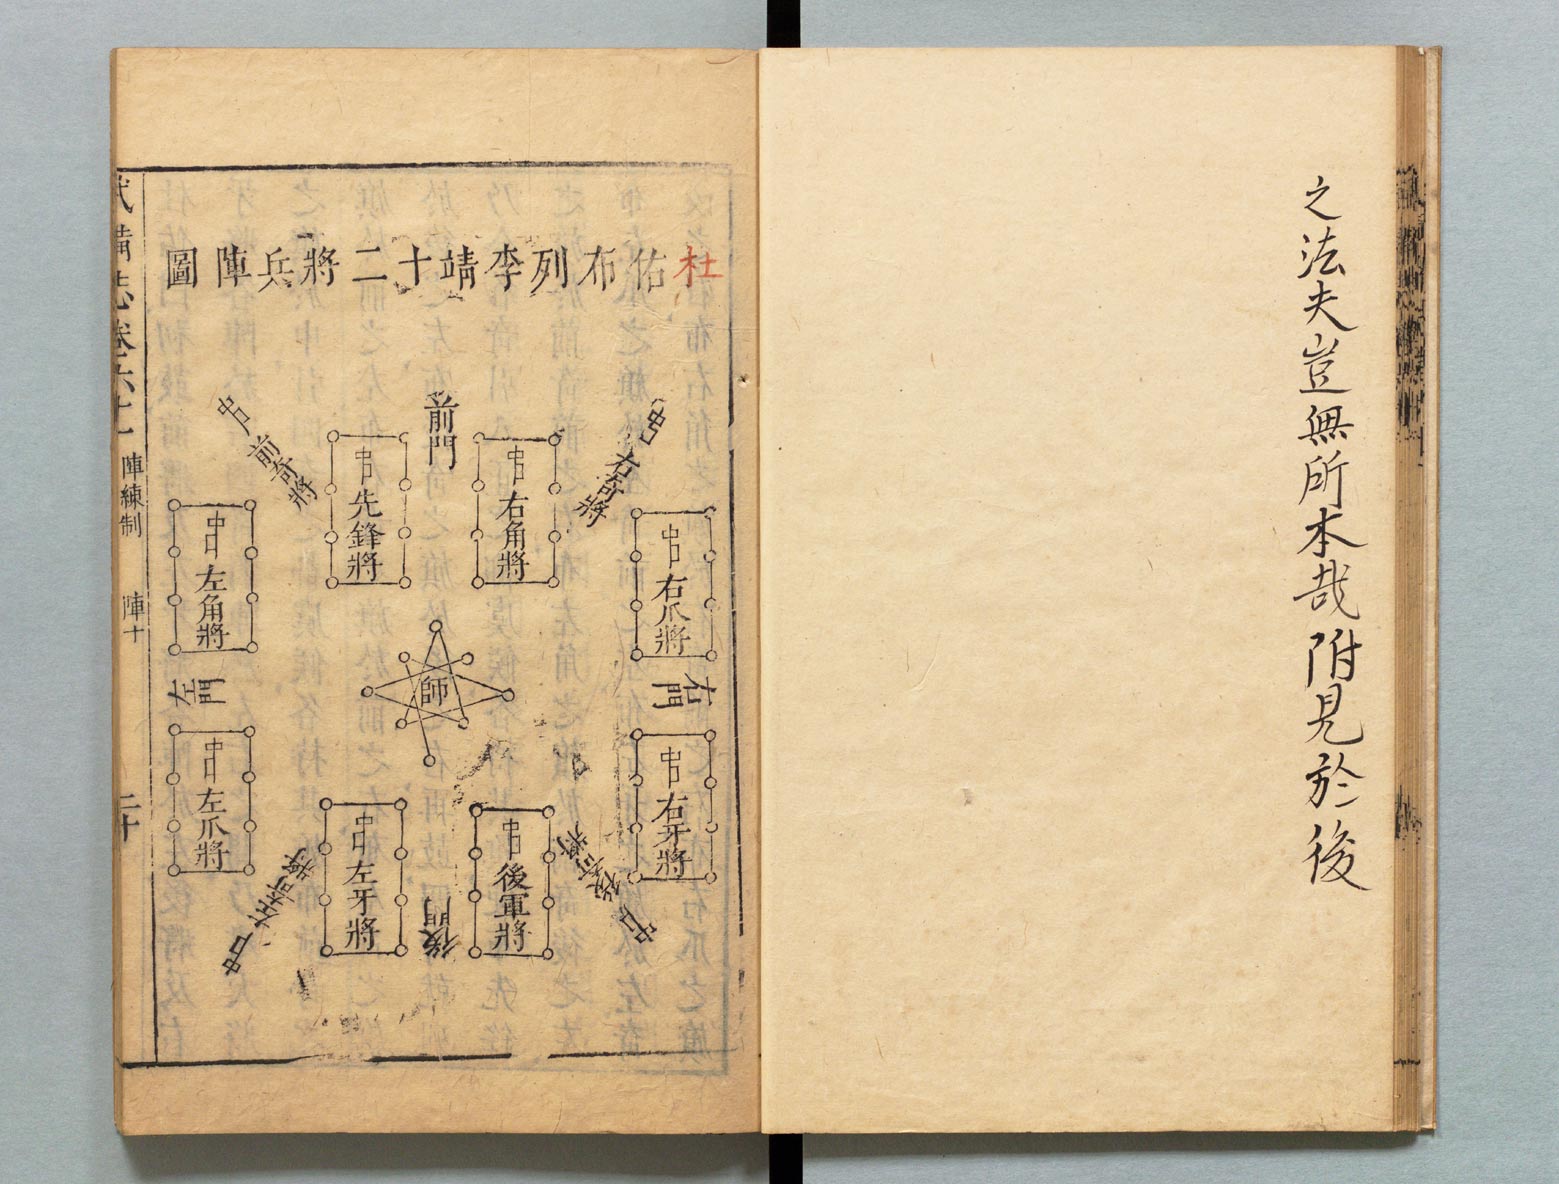 之法夫豈無所本哉附見於後
杜佑布列李靖十二將兵陣圖
前門
中右奇將
中前奇將
中右角將
中先鋒將
中右爪將
中左角將
右門
師
左門
中右牙將
中左爪將
中後軍將
中左牙將
後門
後奇將
左奇將
武備志卷六十
陣練制
陣十
二十